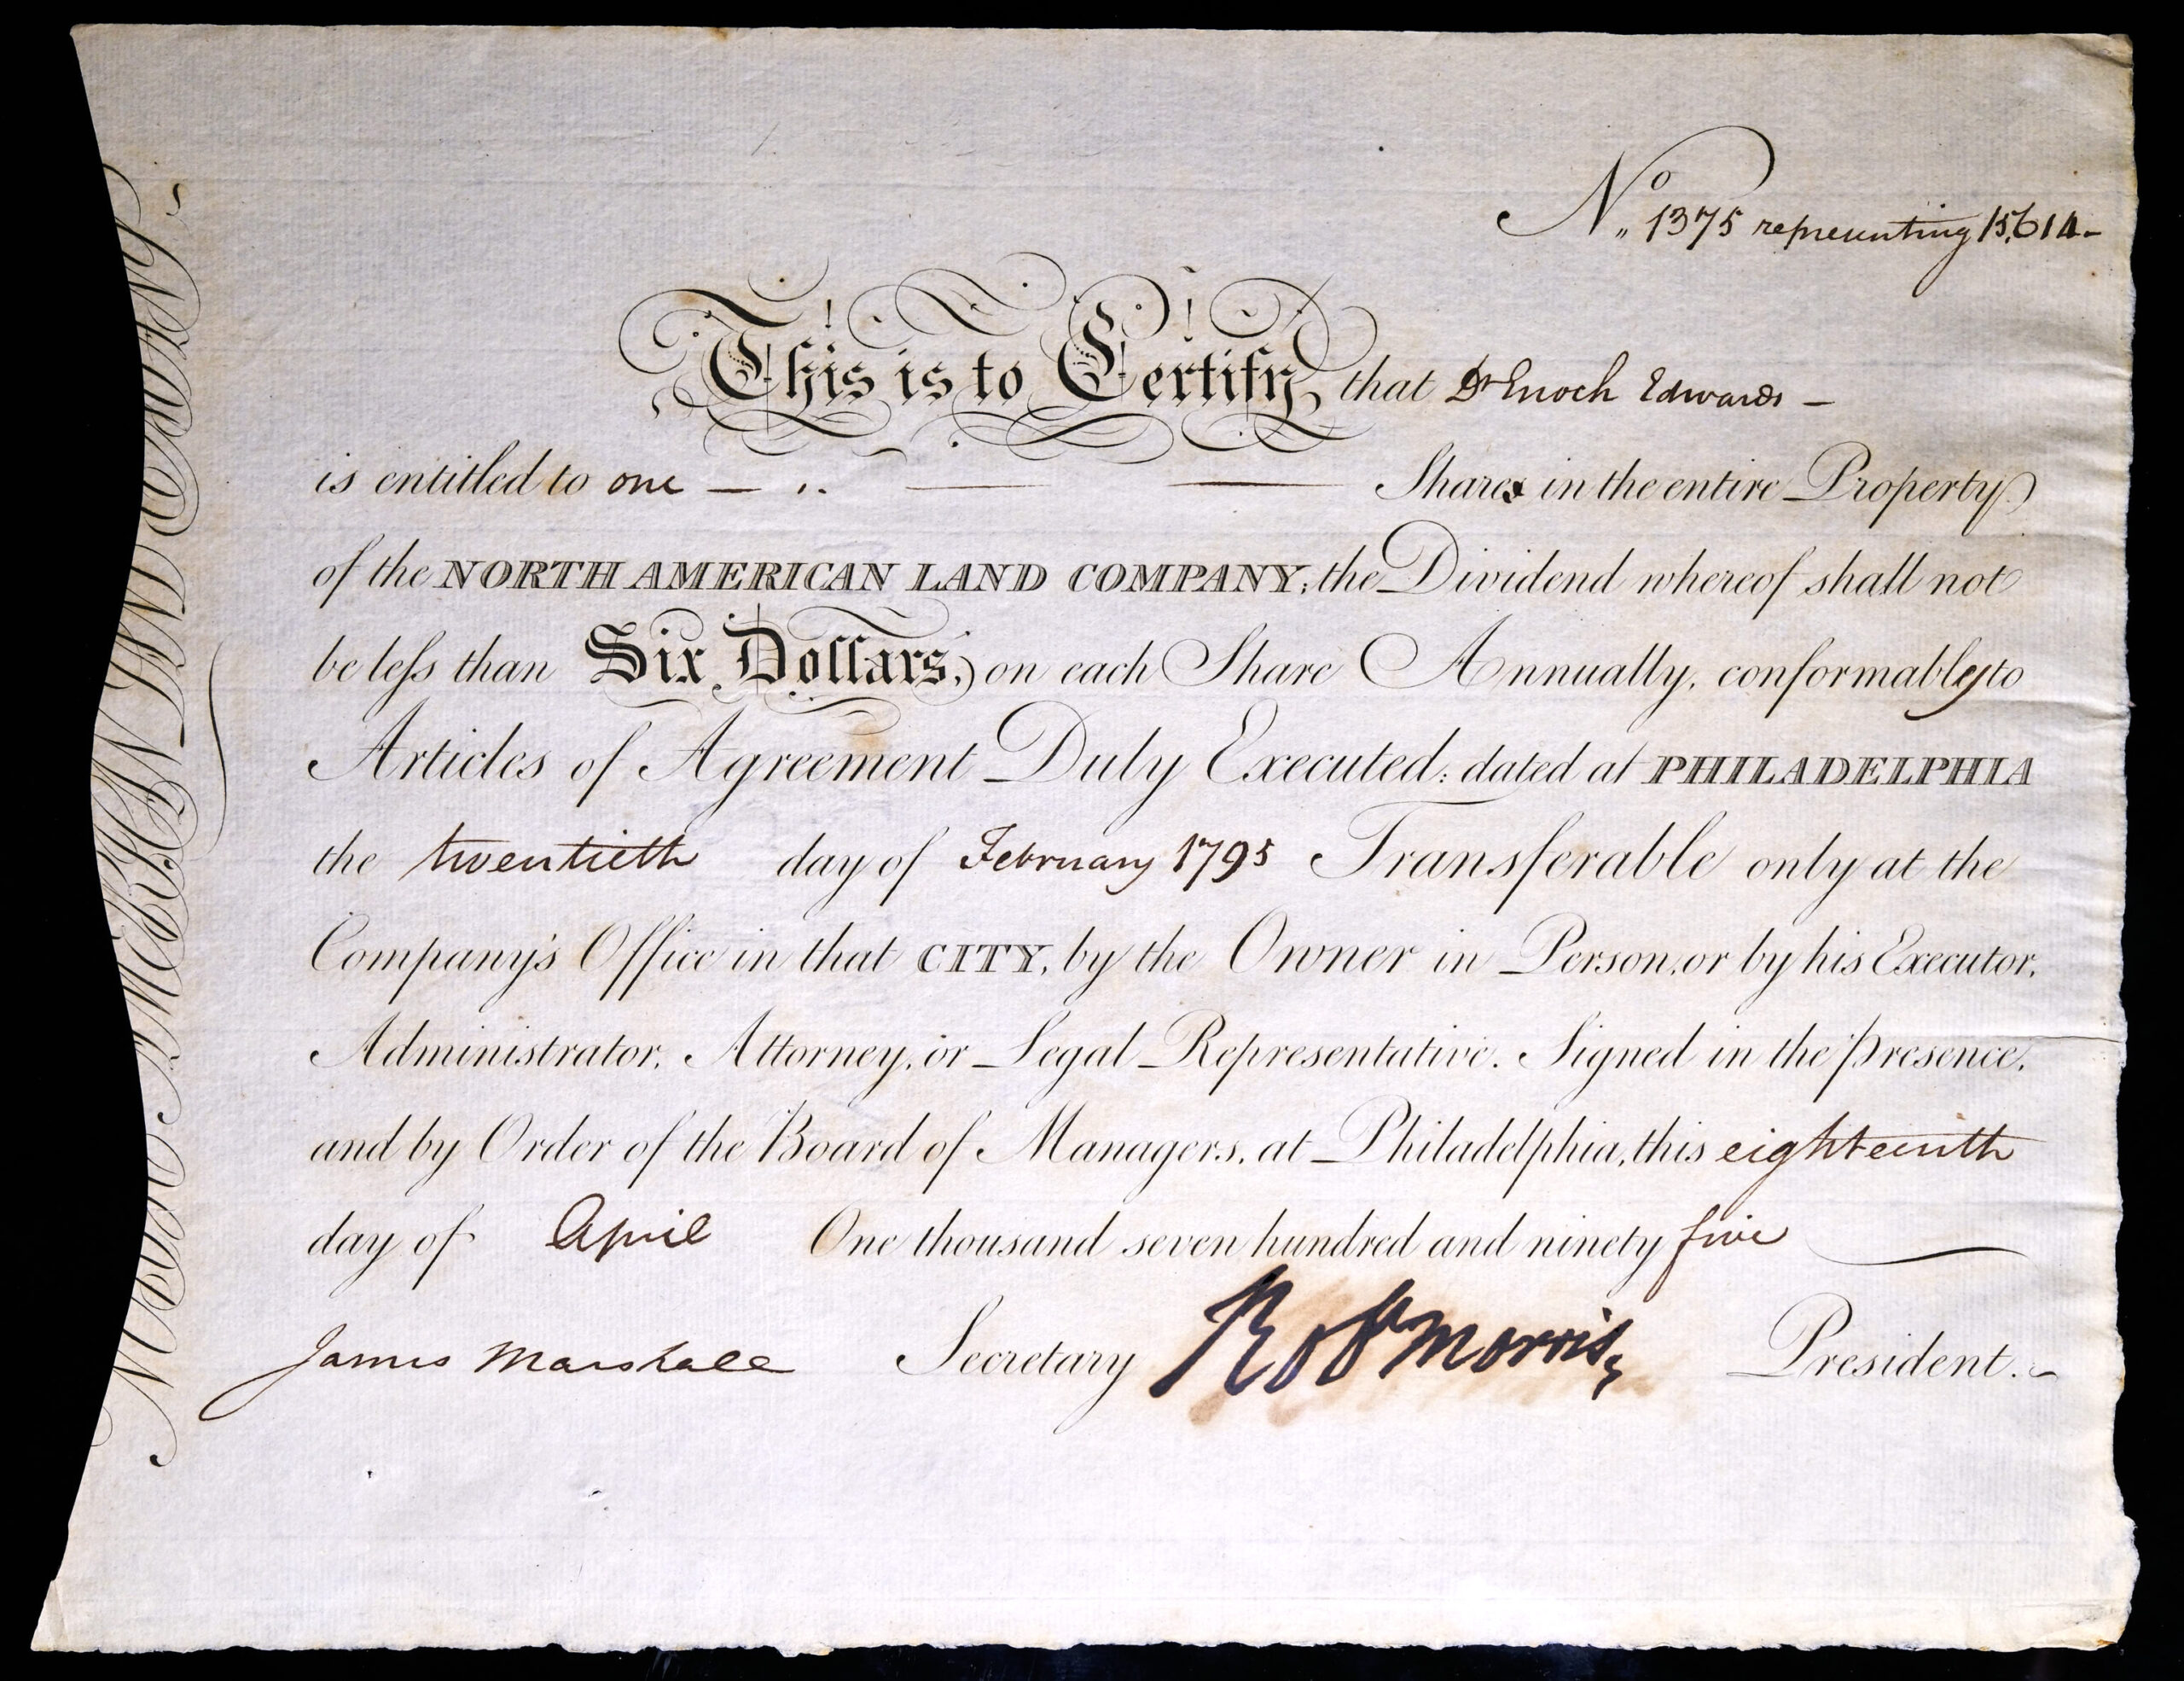 No. 1375 representing 15,614.
This is to Certify, that Dr Enoch Edwards —
is entitled to one — Share in the entire Property
of the NORTH AMERICAN LAND COMPANY; the Dividend whereof shall not
be leſs than Six Dollars, on each Share Annually, conformably to
Articles of Agreement Duly Executed: dated at PHILADELPHIA
the twentieth day of February 1795 Transferable only at the
Company's Office in that CITY, by the Owner in Person, or by his Executor,
Administrator, Attorney, or Legal Representative. Signed in the presence,
and by Order of the Board of Managers, at Philadelphia, this eighteenth
day of April One thousand seven hundred and ninety five
James Marshall Secretary Robt Morris President.
NORTH AMERICAN LAND COMPANY